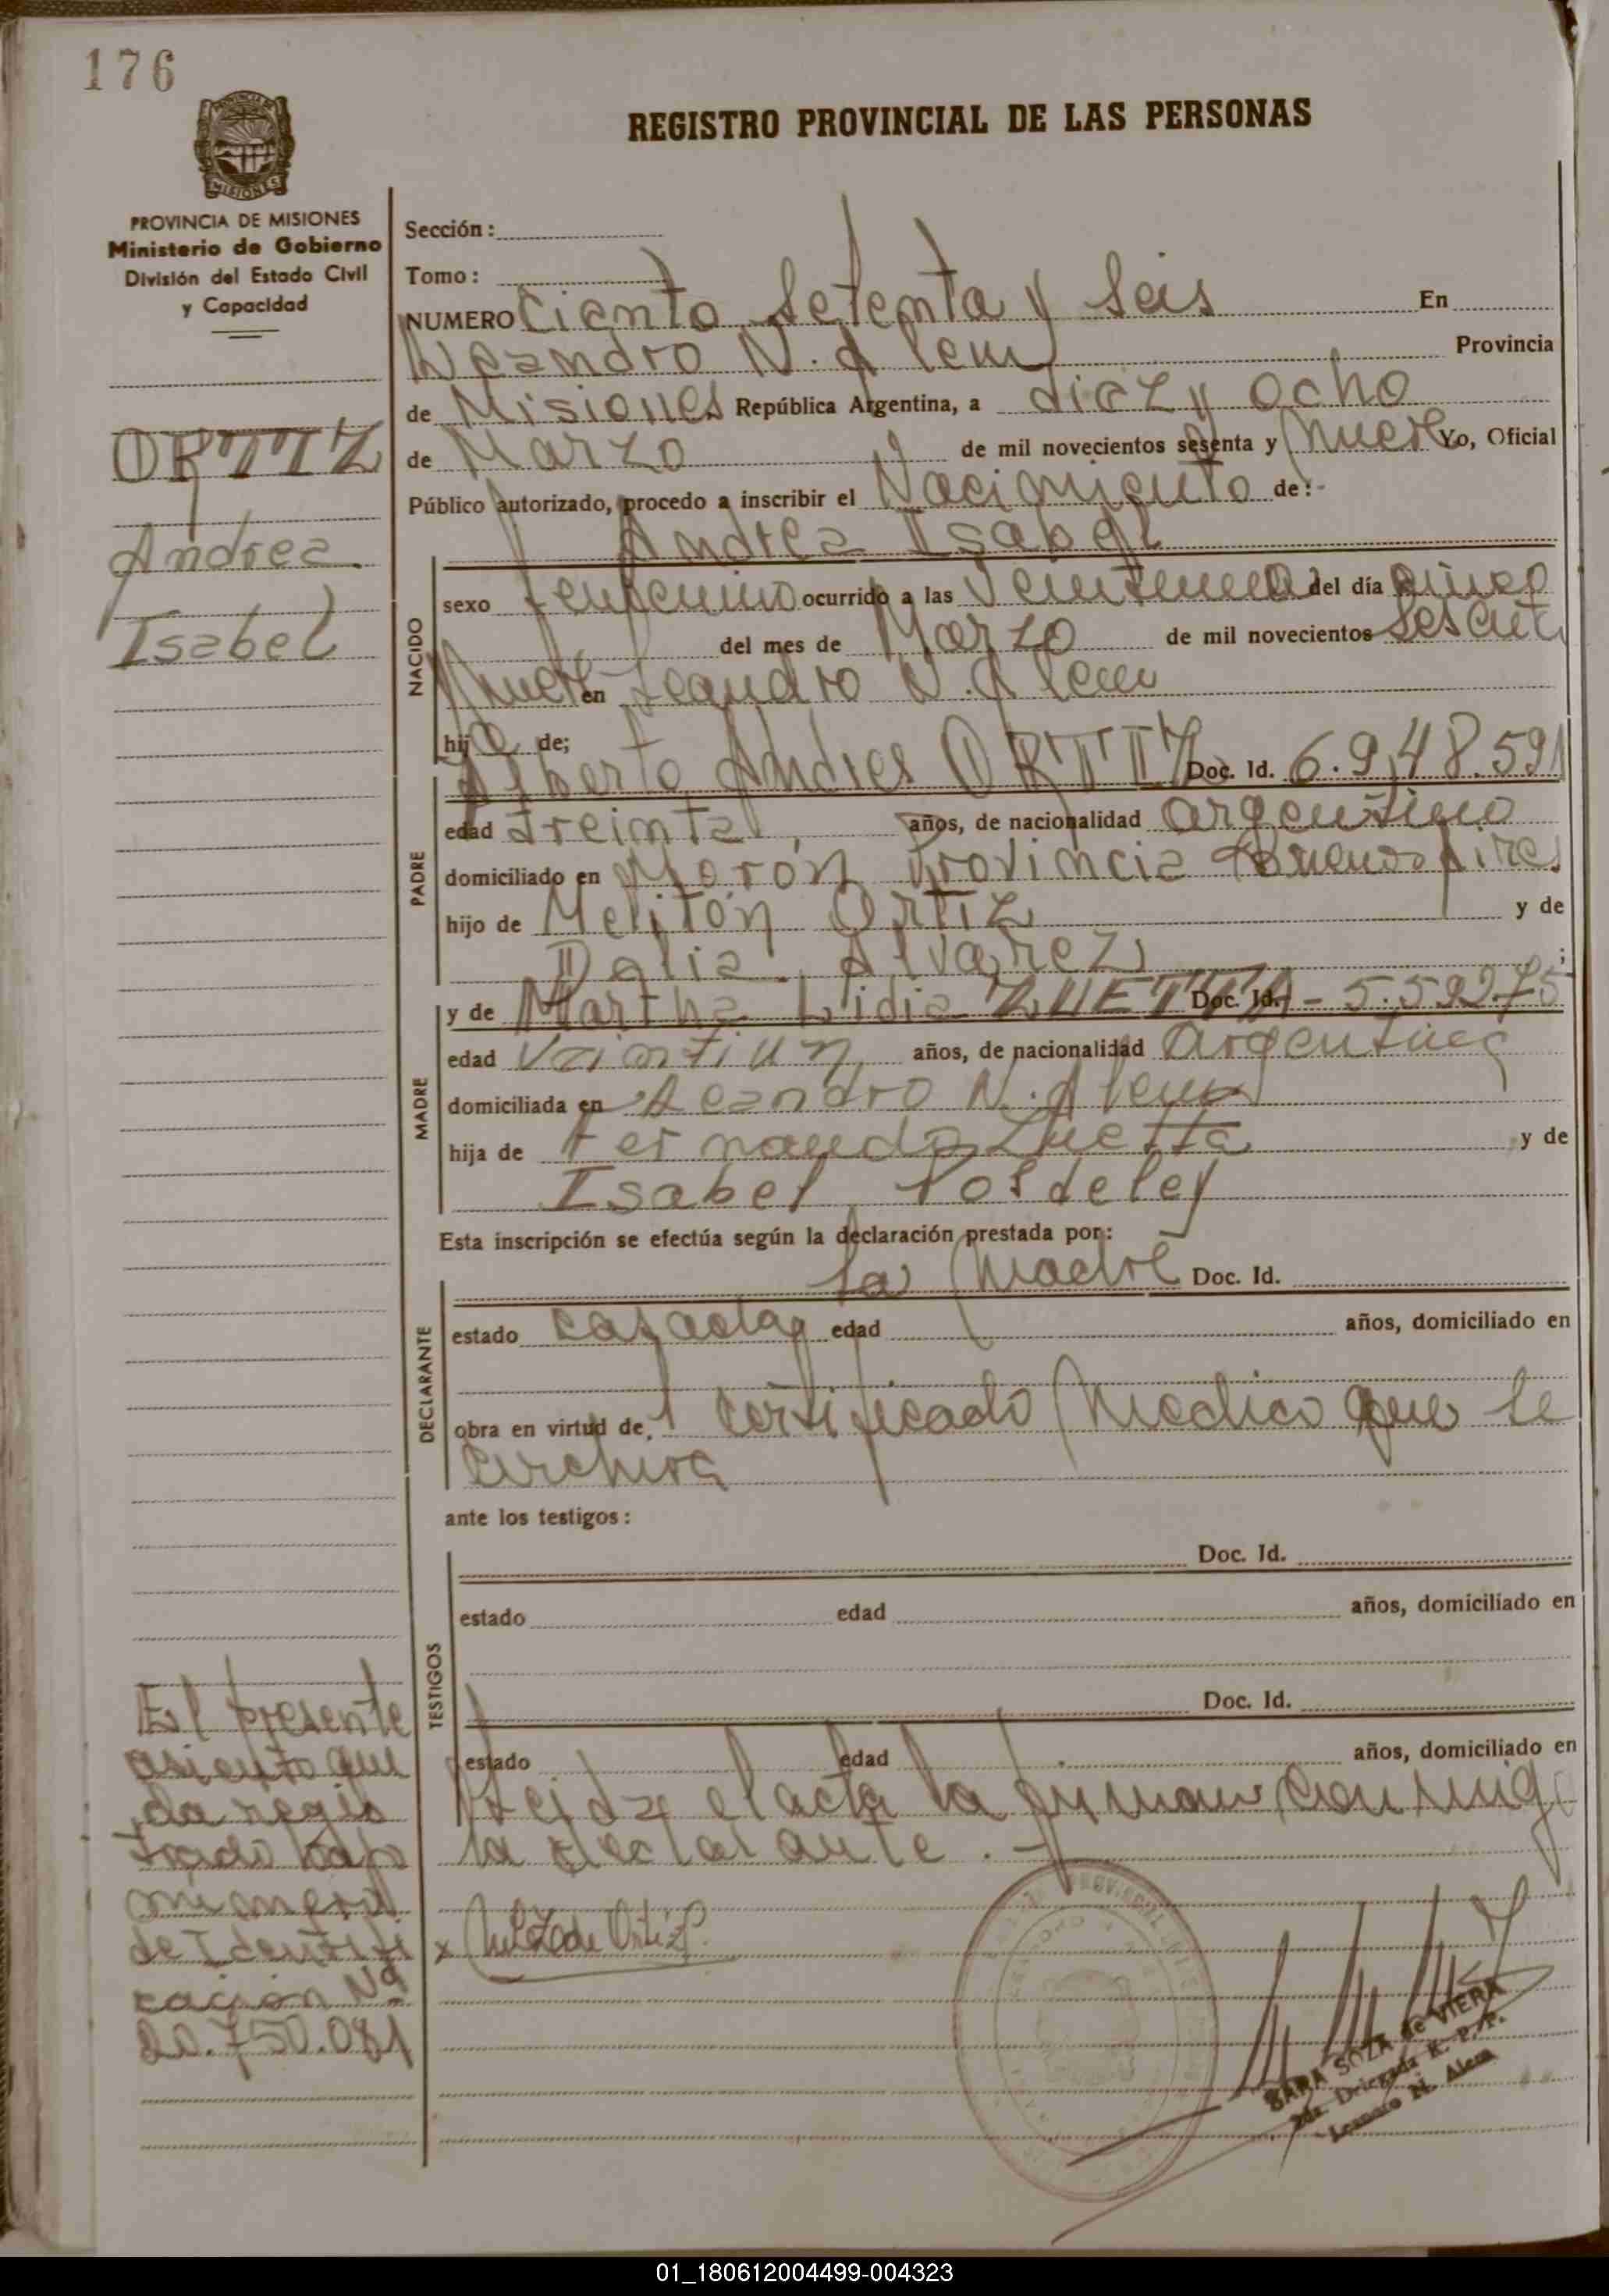 176
REGISTRO PROVINCIAL DE LAS PERSONAS
PROVINCIA DE MISIONES
Ministerio de Gobierno
División del Estado Civil
y Capacidad
ORTIZ
Andrea
Isabel
Sección:
Tomo:
NUMERO Ciento Setenta y Seis En
Leandro N. Alem Provincia
de Misiones República Argentina, a diez y ocho
de Marzo de mil novecientos sesenta y nueve Yo, Oficial
Público autorizado, procedo a inscribir el Nacimiento de:-
Andrea Isabel
NACIDO
sexo femenino ocurrido a las del día cinco
del mes de Marzo de mil novecientos
en Leandro N. Alem
hija de;
Alberto Andres ORTIZ Doc. Id. 6.948.591
PADRE
edad treinta años, de nacionalidad argentino
domiciliado en Morón Provincia Buenos Aires
hijo de Melitón Ortiz y de
Dalia Alvarez;
y de Martha Lidia ZUETTA Doc. Id. - 5.592.75
MADRE
edad Veintiun años, de nacionalidad Argentina
domiciliada en Leandro N. Alem
hija de Fernando Zuetta y de
Isabel
Esta inscripción se efectúa según la declaración prestada por:
la Madre Doc. Id.
DECLARANTE
estado casada edad años, domiciliado en
obra en virtud de, certificado Medico que se
archiva
ante los testigos:
Doc. Id.
TESTIGOS
estado edad años, domiciliado en
Doc. Id.
estado edad años, domiciliado en
Leida el acta la firman conmigo
la declarante.-
x de Ortiz
SARA SOZA de VIERA
Delegada R. P. P.
Leandro N. Alem
El presente
asiento que
da regis
trado bajo
numero
de Identifi
cación Nº
20.750.081
01_180612004499-004323